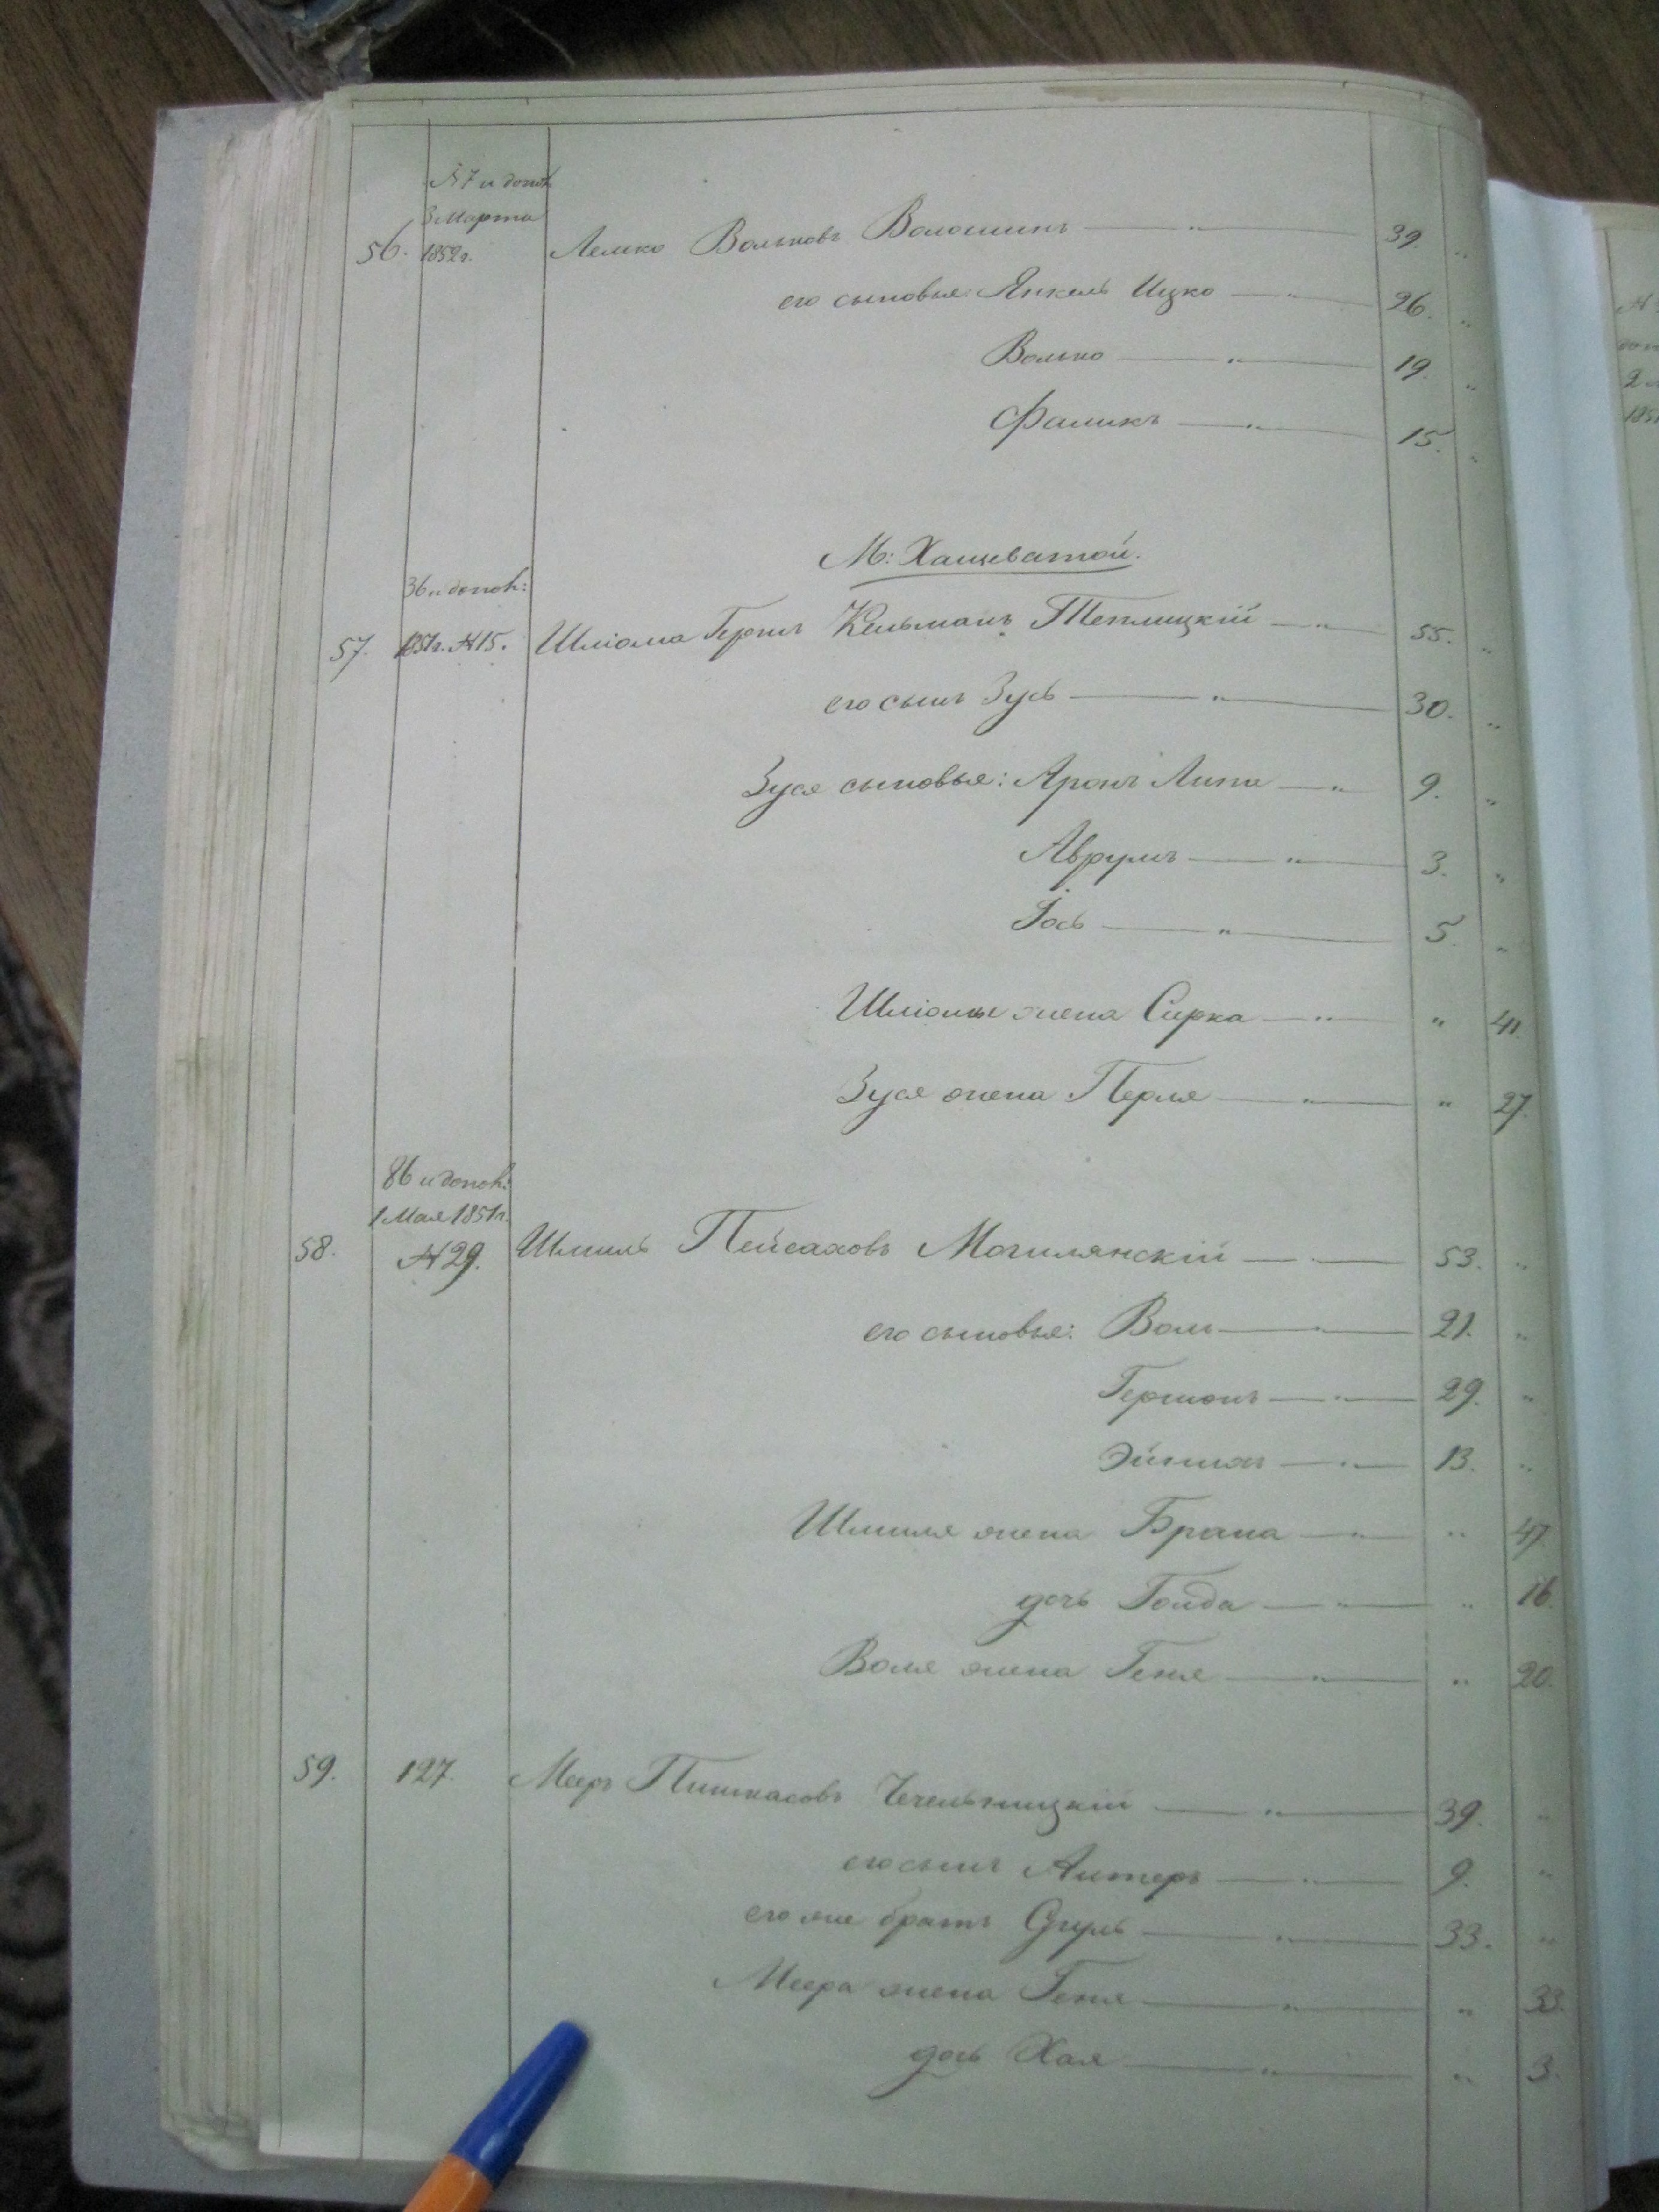 № 7 и допол:
3 Марта
56. 1852 г. Лейко Вольковъ Волошинъ — " — 39. "
его сыновья: Янкель Ицко — " — 26. "
Волько — " — 19. "
Фаликъ — " — 15. "
М: Хащеватой.
36 и допол:
57. 1851 г. № 15. Шліома Гершъ Кельманъ Теплицкій — " — 55. "
его сынъ Зусь — " — 30. "
Зуся сыновья: Аронъ Липа — " — 9. "
Аврумъ — " — 3. "
Іось — " — 5. "
Шліомы жена Сирка — " — " 41.
Зуся жена Перля — " — " 27.
86 и допол:
1 Мая 1851 г.
58. № 29. Шмиль Пейсаховъ Могилянскій — " — 53. "
его сыновья: Воль — " — 21. "
Гершонъ — " — 29. "
13. "
Шмиля жена Брана — " — " 47.
дочь Голда — " — " 16.
Воля жена Геня — " — " 20.
59. 127. Мееръ Пинкасовъ Чечельницкій — " — 39. "
его сынъ Алтеръ — " — 9. "
его же братъ Сруль — " — 33. "
Меера жена Геня — " — " 33.
дочь Хая — " — " 3.